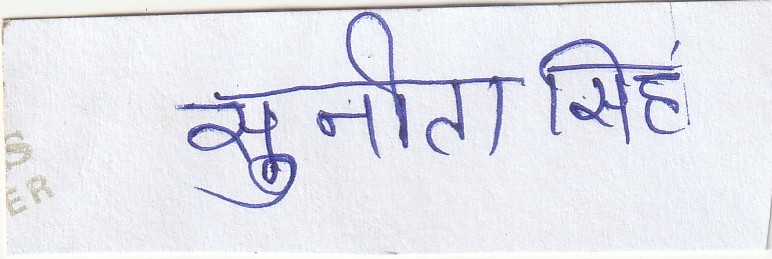 सुनीता सिहं
S
ER